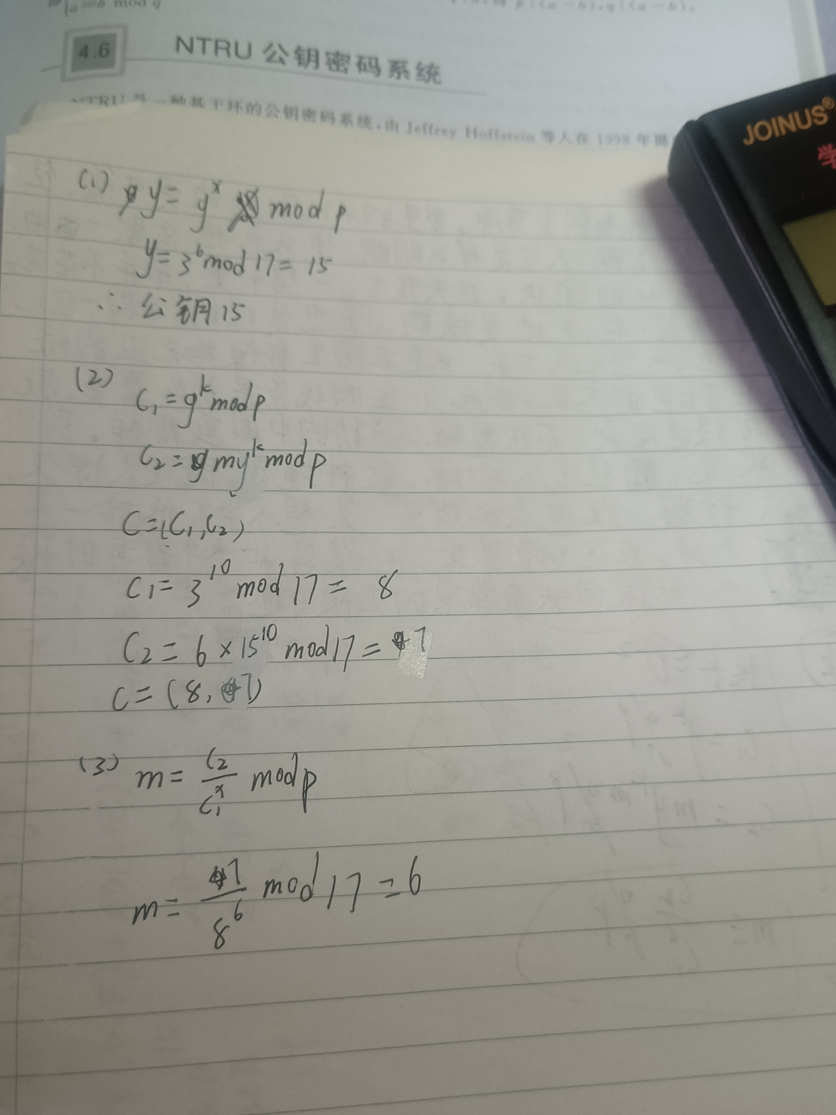 4.6 NTRU 公钥密码系统
NTRU 是一种基于环的公钥密码系统,由 Jeffrey Hoffstein 等人在 1998 年
JOINUS®
学
(1) y = g^x mod p
y = 3^6 mod 17 = 15
∴ 公钥15
(2) C₁ = g^k mod p
C₂ = my^k mod p
C = (C₁, C₂)
C₁ = 3^10 mod 17 = 8
C₂ = 6 × 15^10 mod 17 = 7
C = (8, 7)
(3) m = C₂/C₁^x mod p
m = 7/8^6 mod 17 = 6